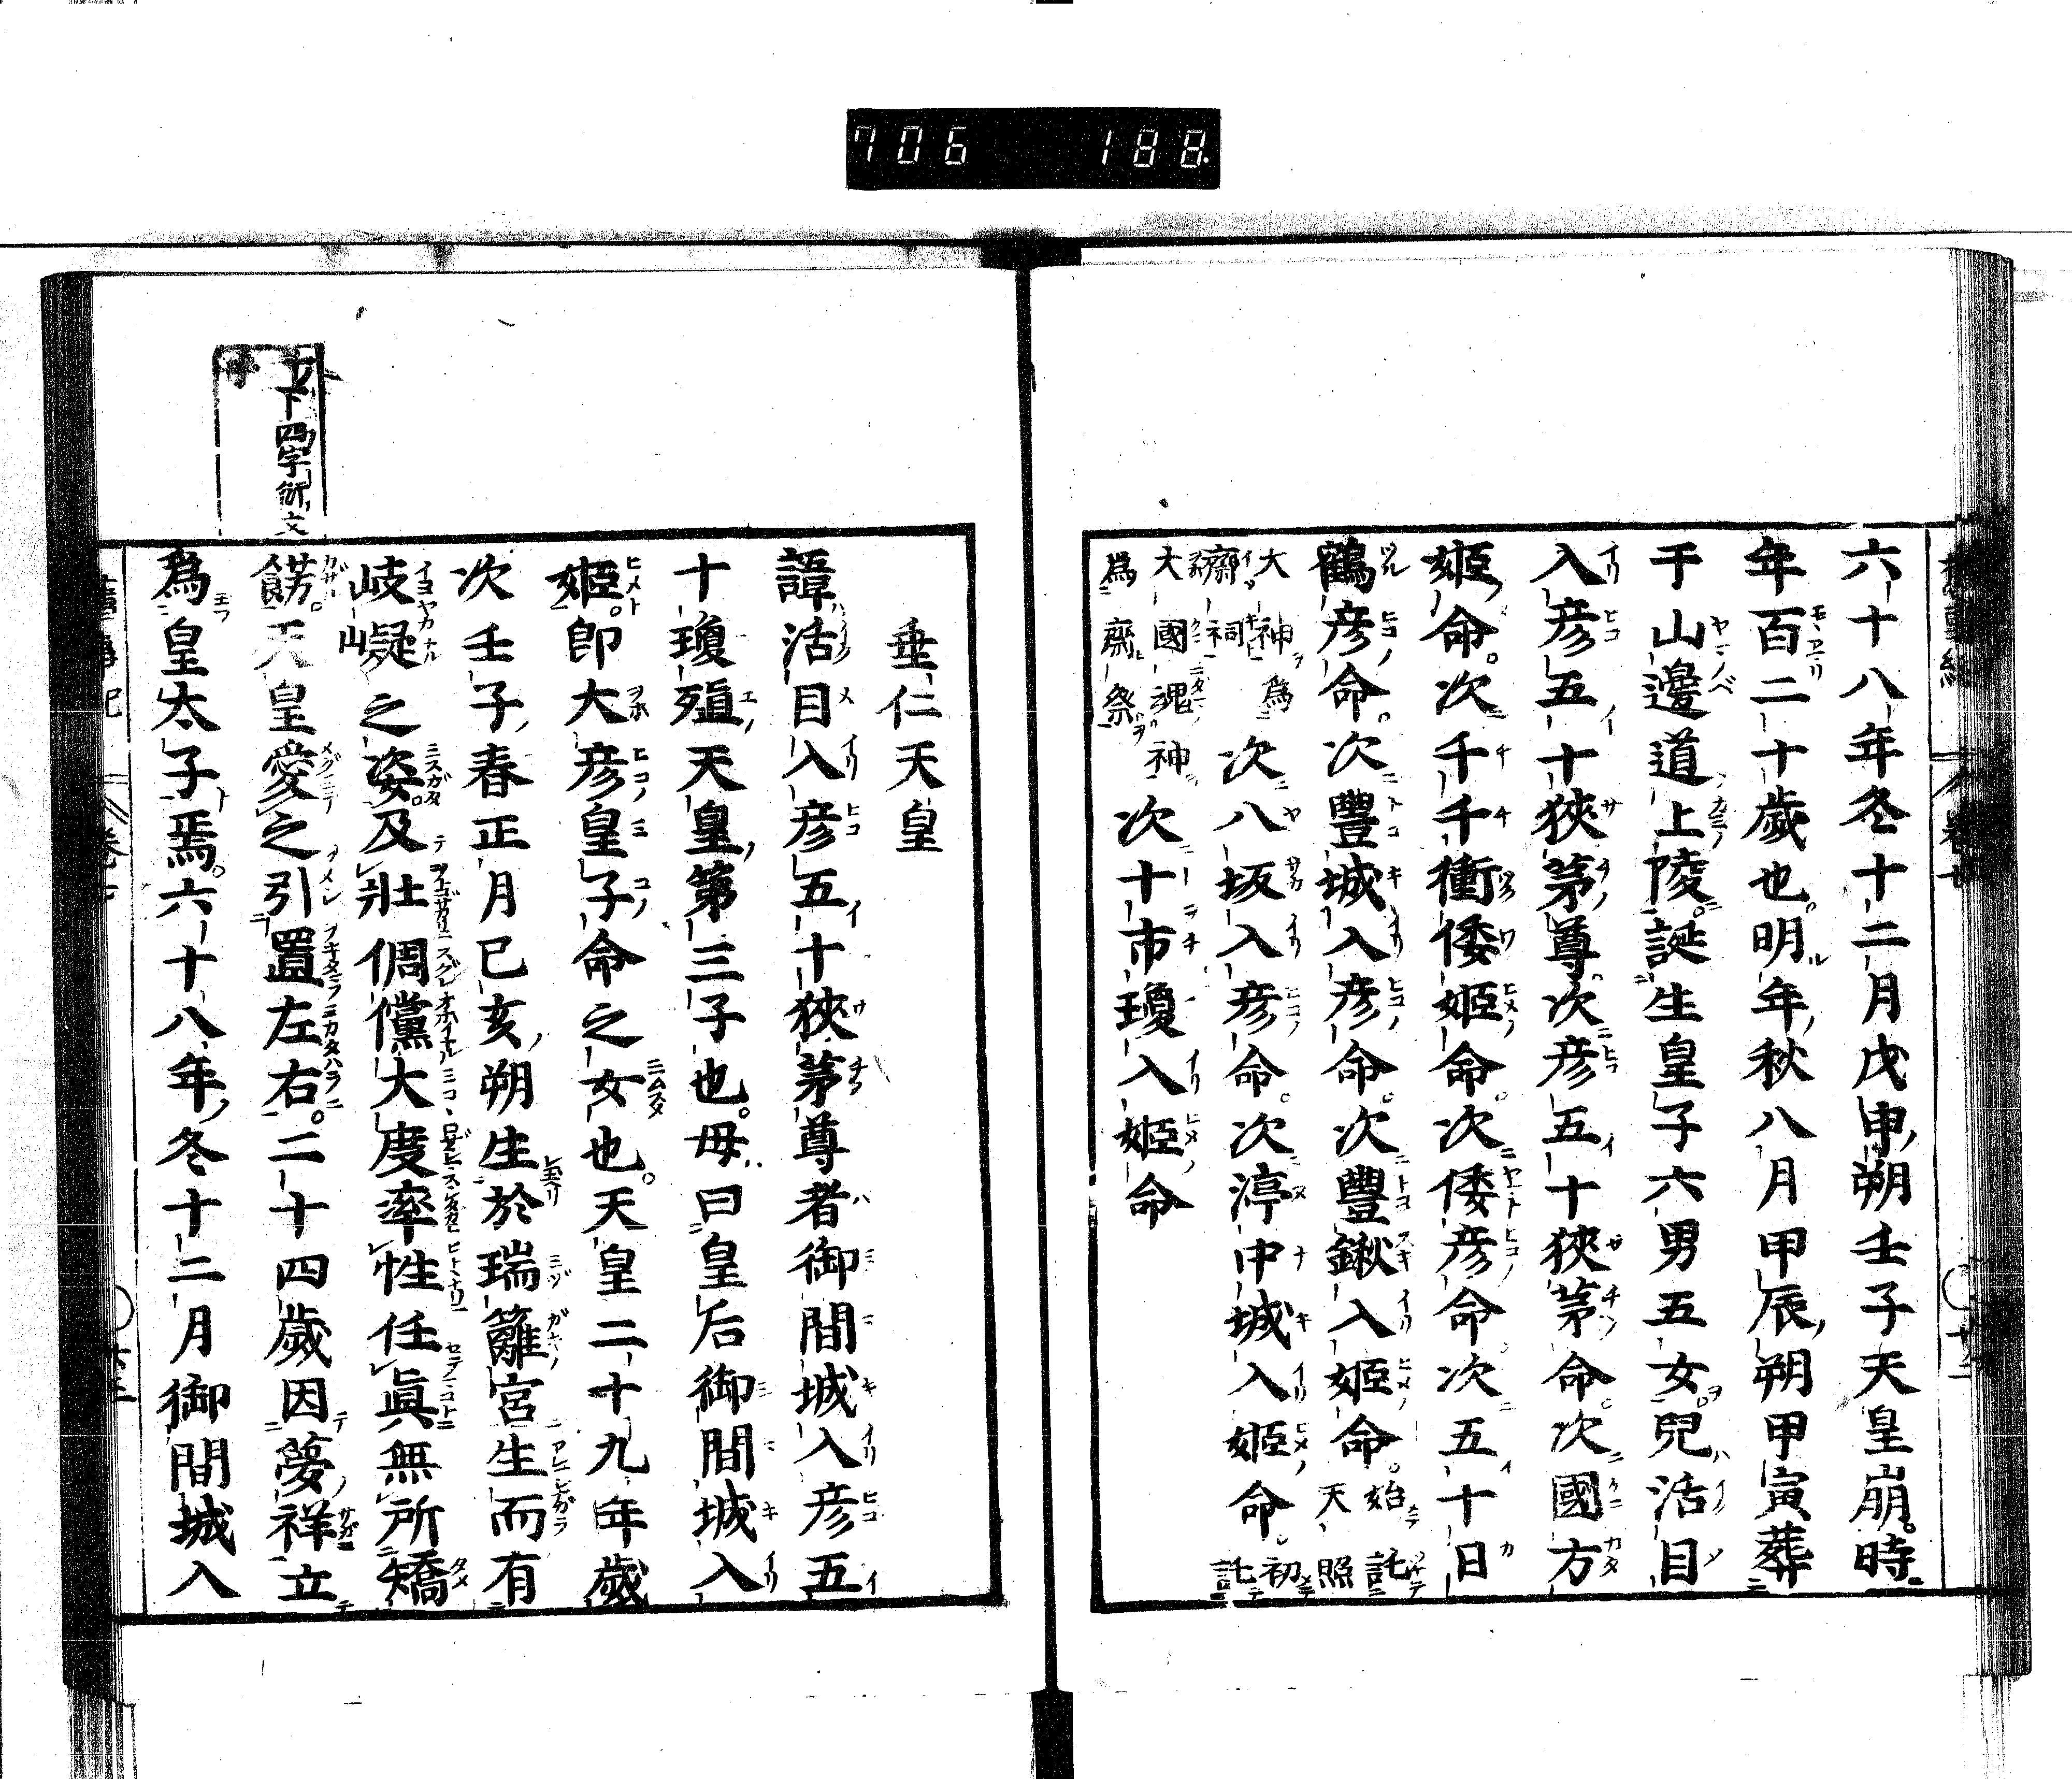 706 188
六十八年冬十二月戊申朔壬子天皇崩時
年百二十歲也明年秋八月甲辰朔甲寅葬
于山邊道上陵誕生皇子六男五女兒活目
入彦五十狹茅尊次彦五十狹茅命次國方
姬命次千千衝倭姬命次倭彦命次五十日
鶴彦命次豐城入彦命次豐鍬入姬命始託天照
大神爲齋祠次八坂入彦命次渟中城入姬命初託
大國魂神爲齋祭次十市瓊入姬命
垂仁天皇
諱活目入彦五十狹茅尊者御間城入彦五
十瓊殖天皇第三子也母曰皇后御間城入
姬卽大彦皇子命之女也天皇二十九年歲
次壬子春正月己亥朔生於瑞籬宮生而有
岐嶷之姿及壯倜儻大度率性任眞無所矯
餝天皇愛之引置左右二十四歲因夢祥立
爲皇太子焉六十八年冬十二月御間城入
下四字衍文